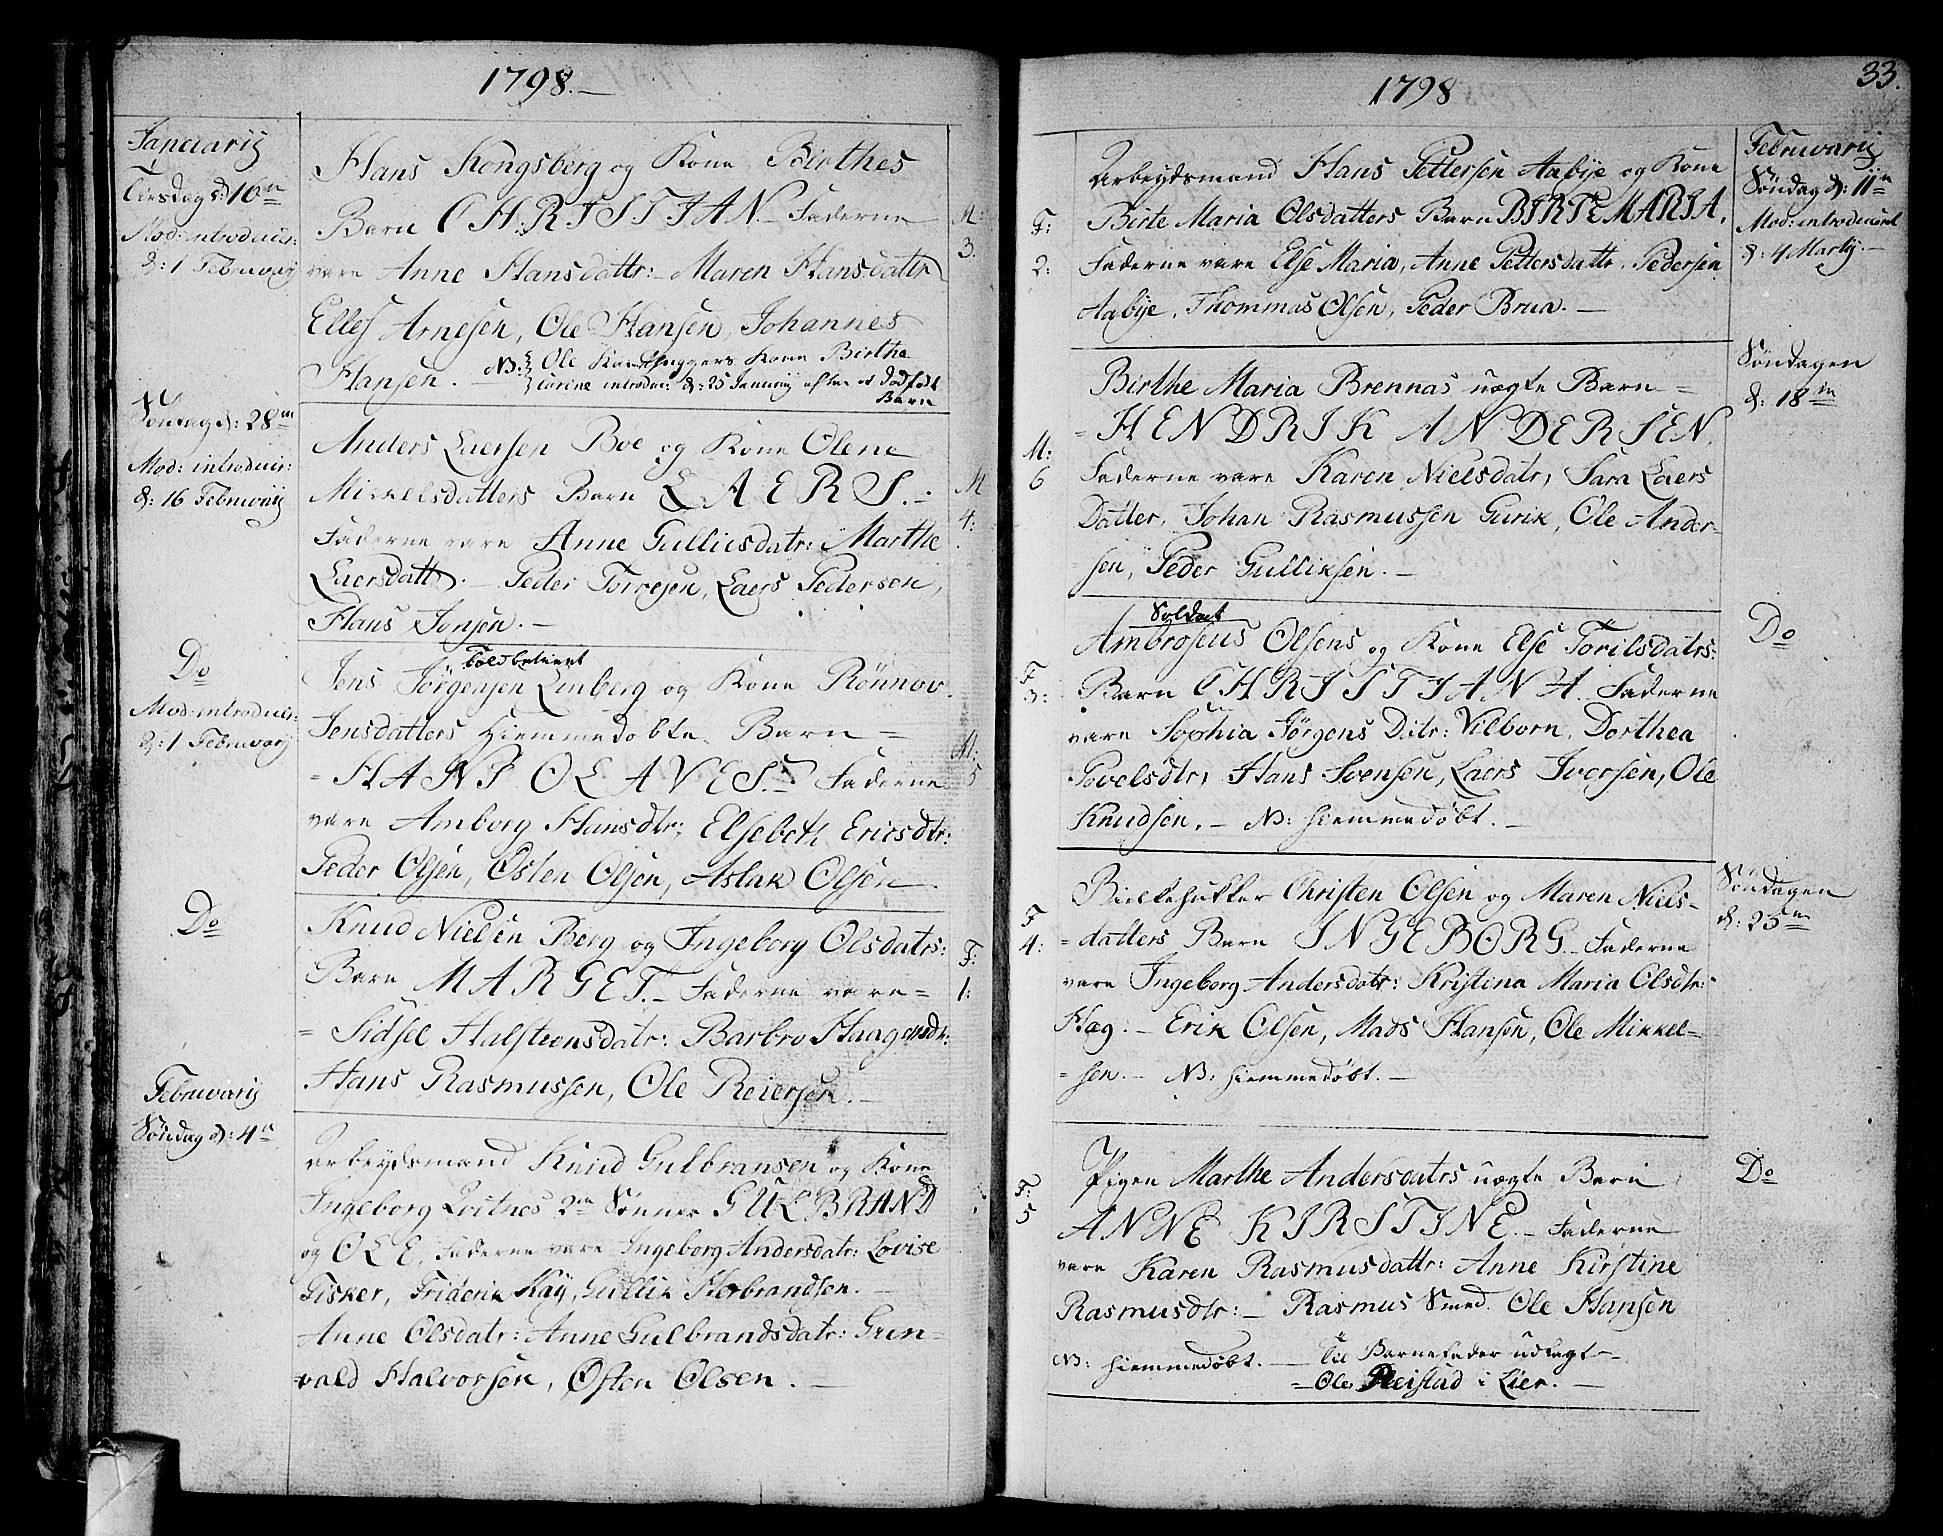 1798.
Januarij
Tirsdag d: 16n
Mod: introducir:
d: 1 Februarij
Hans Kongsberg og Kone Birthes
Barn CHRISTIAN. Faderne
vare Anne Hansdattr: Maren Hansdattr
Elles Arnesen, Ole Hansen, Johannes
Hansen. NB: Ole Kone Birthe
introdu: d: 25 Januarij efter et dødfødt
Barn
M:
3.
Søndag d: 28n
Mod: introducir:
d: 16 Februarij
Anders Laersen Boe og Kone Olene
Mikkelsdatters Barn LAERS.
Faderne vare Anne Gulliesdatr: Marthe
Laersdattr. Peder Torresen, Laers Pedersen,
Hans Jonsen.
M
4:
Do
Mod: introducir:
d: 1 Februarij
Toldbetient
Jens Jörgensen Linberg og Kone Rönnov
Jensdatters hiemmedøbte Barn =
= HANS OLAVES. Faderne
vare Amborg Hansdtr; Elsebeth Ericsdtr:
Peder Olsen, Østen Olsen, Aslak Olsen.
M:
5
Do
Knud Nielsen Berg og Ingeborg Olsdatrs:
Barn MARGET. Faderne vare =
= Sidsel Halsteensdatr: Barbro Haagensdtr:
Hans Rasmussen, Ole Reiersen.
F:
1:
Februarij
Søndag d: 4n
Arbeydsmand Knud Gulbransen og Kone
Ingeborg 2n Sønner GULBRAND
og OLE, Faderne vare Ingeborg Andersdatr: Lovise
Fisker, Friderik Kay, Gullik Herbrandsen.
Anne Olsdatr: Anne Gulbrandsdatr: Grun-
vald Halvorsen, Østen Olsen.
1798
33.
F:
2:
Arbeydsmand Hans Pettersen Aabye og Kone
Birte Maria Olsdatters Barn BIRTE MARIA,
Faderne vare Else Maria, Anne Pettersdattr. Pedersen
Aabye, Thommas Olsen, Peder Brua.
Februarij
Søndag d: 11n
Mod: introduciret
d: 4 Martij.
M:
6
Birthe Maria Brennas uægte Barn =
= HENDRIK ANDERSEN.
Faderne vare Karen Nielsdatr, Sara Laers
Datter, Johan Rasmussen Gurik, Ole Ander-
= sen, Peder Gulliksen.
Søndagen
d: 18n
F
3:
Soldat
Ambrosius Olsens og Kone Else Torilsdatrs:
Barn CHRISTIANA. Faderne
vare Sophia Jørgens Datr: Vilborn, Dorthea
Povelsdtr, Hans Svensen, Laers Iversen, Ole
Knudsen. NB: hiemmedøbt.
Do
F
4:
Christen Olsen og Maren Niels-
= datters Barn INGEBORG. Faderne
vare Ingeborg Andersdatr: Kristena Maria Olsdtr:
Hæg: Erik Olsen, Mads Hansen, Ole Mikkel-
= sen. NB: hiemmedøbt.
Søndagen
d: 25n
F:
5
Pigen Marthe Andersdatrs uægte Barn
ANNE KIRSTINE. Faderne
vare Karen Rasmusdattr: Anne Kirstine
Rasmusdtr: Rasmus Smed. Ole Hansen
NB: hiemmedøbt. Til Barnefader udlagt
Ole Reistad i Lier.
Do